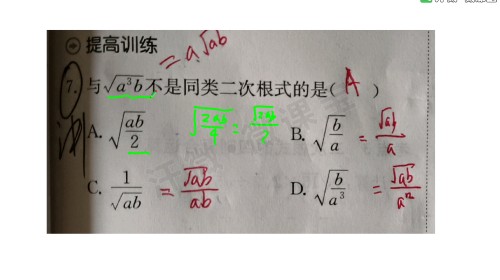 提高训练
= a√ab
7. 与√a³b不是同类二次根式的是( A )
A. √(ab/2) √(2ab/4) = √2ab/2 B. √(b/a) = √ab/a
C. 1/√ab = √ab/ab D. √(b/a³) = √ab/a²